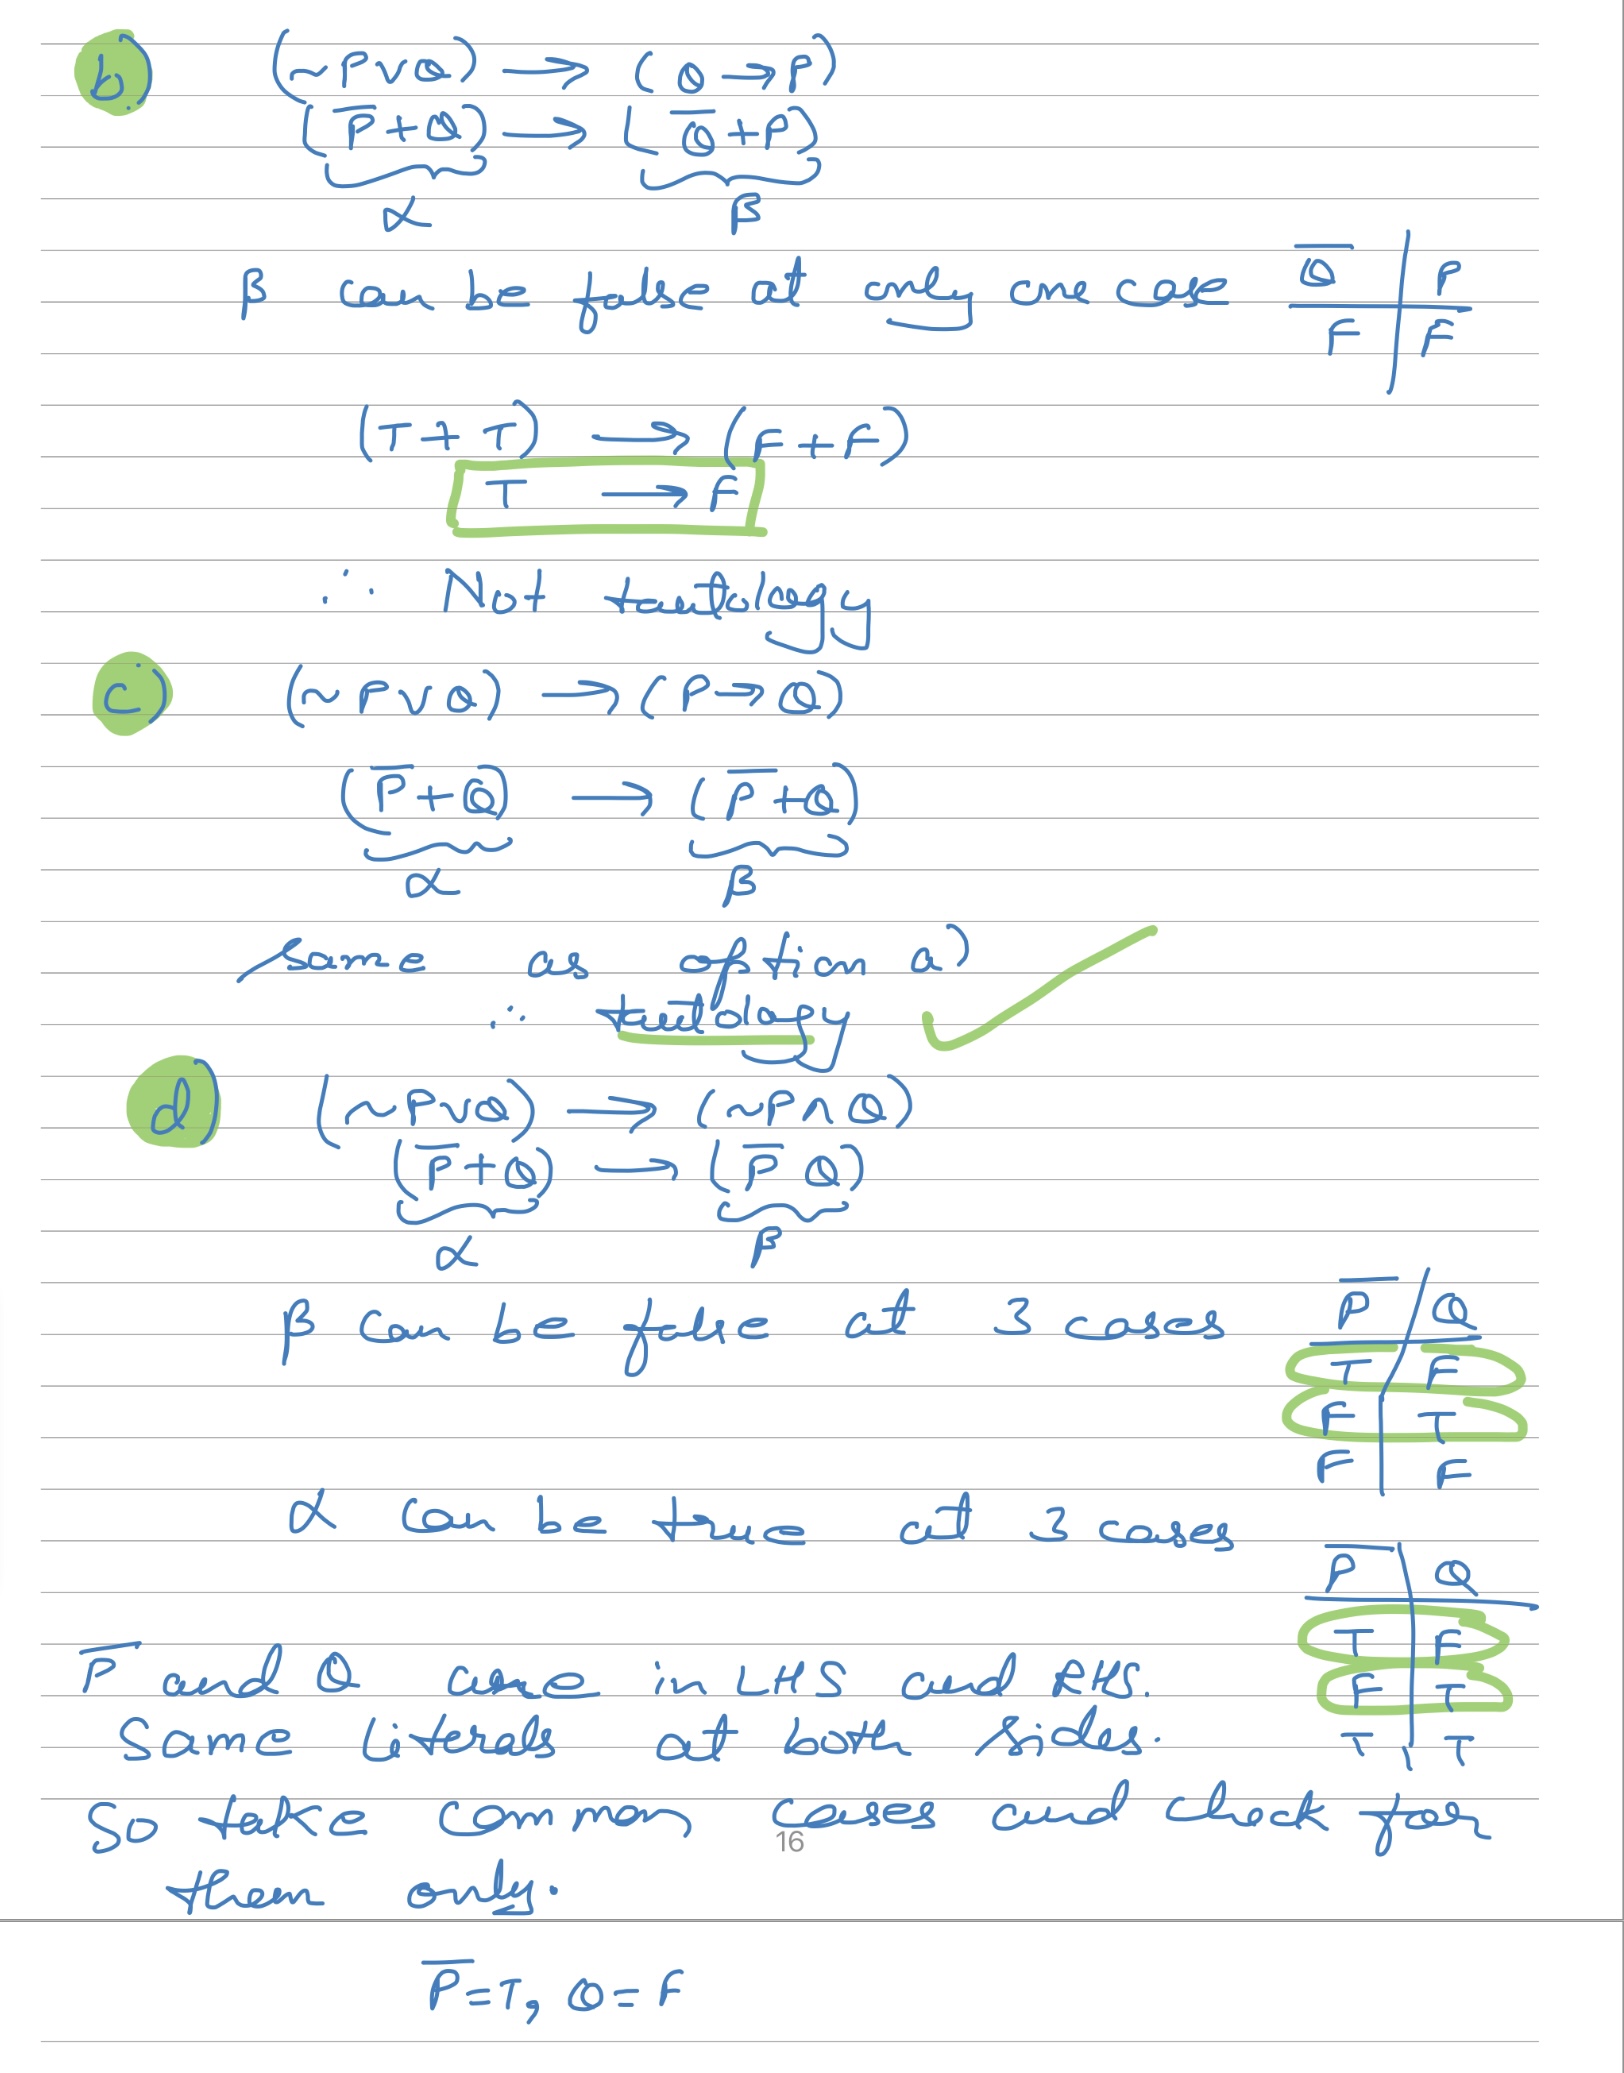 b) (~P∨Q) → (Q → P)
(P̅+Q) → (Q̅+P)
α β
β can be false at only one case
Q̅ P
F F
(T + T) → (F + F)
T → F
∴ Not tautology
c) (~P∨Q) → (P → Q)
(P̅+Q) → (P̅+Q)
α β
same as option a)
∴ tautology
d) (~P∨Q) → (~P∧Q)
(P̅+Q) → (P̅ Q)
α β
β can be false at 3 cases
P̅ Q
T F
F T
F F
α can be true at 3 cases
P̅ Q
T F
F T
T T
P̅ and Q are in LHS and RHS.
Same literals at both sides.
So take common cases and check for
16
them only.
P̅=T, Q=F